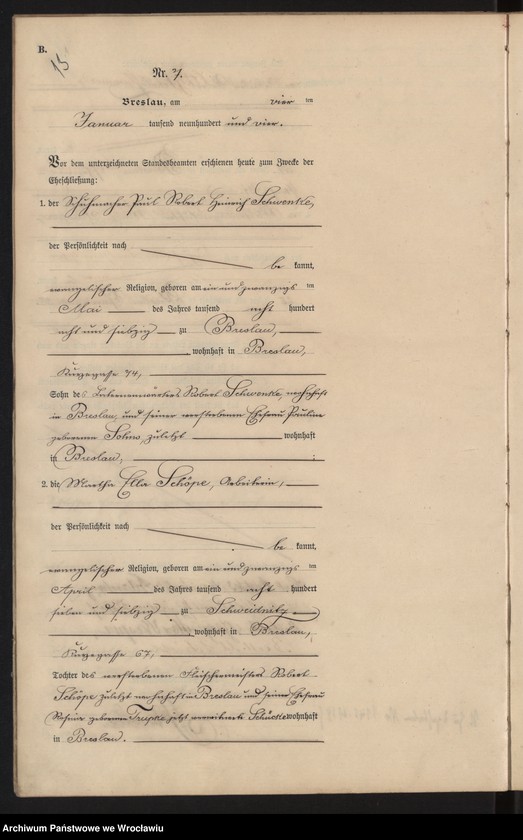 B.
15
Nr. 7.
Breslau, am vier ten
Januar tausend neunhundert und vier.
Vor dem unterzeichneten Standesbeamten erschienen heute zum Zwecke der
Eheschließung:
1. der Schuhmacher Paul Robert Heinrich Schwenke,
der Persönlichkeit nach
be kannt,
evangelischer Religion, geboren am ein und zwanzigs ten
Mai des Jahres tausend acht hundert
acht und siebzig zu Breslau,
, wohnhaft in Breslau,
74,
Sohn des Robert Schwenke, wohnhaft
in Breslau, und seiner verstorbenen Ehefrau Pauline
geborenen zuletzt wohnhaft
in Breslau, ;
2. die Martha Ella Schöpe, Arbeiterin,
der Persönlichkeit nach
be kannt,
evangelischer Religion, geboren am ein und zwanzigs ten
April des Jahres tausend acht hundert
sieben und siebzig zu Schweidnitz
, wohnhaft in Breslau,
67,
Tochter des verstorbenen Fleischermeisters Robert
Schöpe zuletzt wohnhaft in Breslau und seiner Ehefrau
geborenen jetzt wohnhaft
in Breslau.
Archiwum Państwowe we Wrocławiu